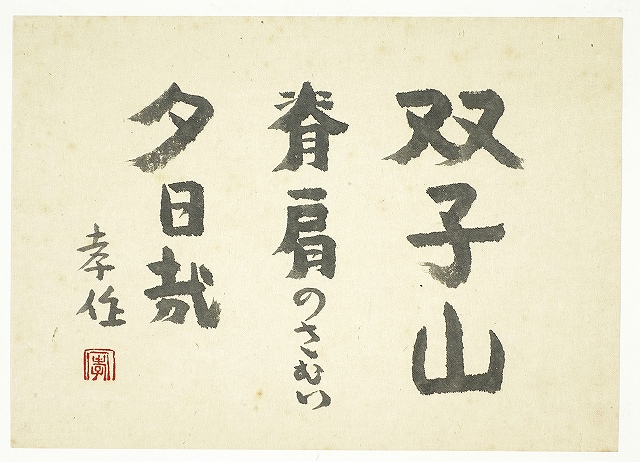 双子山
脊肩のさむい
夕日哉
孝作
孝